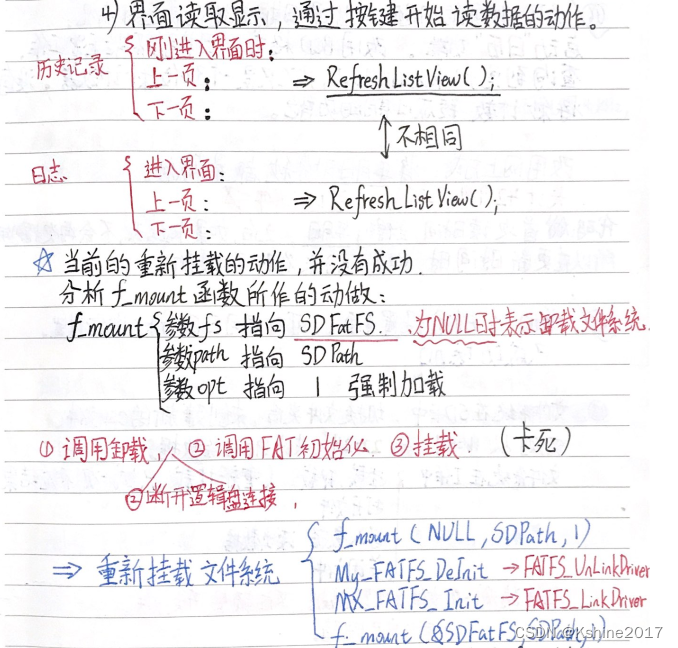 4) 界面读取显示，通过按键开始读数据的动作。
历史记录
刚进入界面时：
上一页：
下一页：
⇒ RefreshListView();
不相同
日志
进入界面：
上一页：
下一页：
⇒ RefreshListView();
☆ 当前的重新挂载的动作，并没有成功.
分析 f_mount 函数所作的动做：
f_mount
参数fs 指向 SDFatFS. 为NULL时表示卸载文件系统.
参数path 指向 SDPath
参数opt 指向 1 强制加载
① 调用卸载， ② 调用FAT初始化 ③ 挂载. （卡死）
② 断开逻辑盘连接，
⇒ 重新挂载文件系统
f_mount (NULL, SDPath, 1)
My_FATFS_DeInit → FATFS_UnLinkDriver
MX_FATFS_Init → FATFS_LinkDriver
f_mount (&SDFatFS, SDPath, 1)
CSDN @Kshine2017